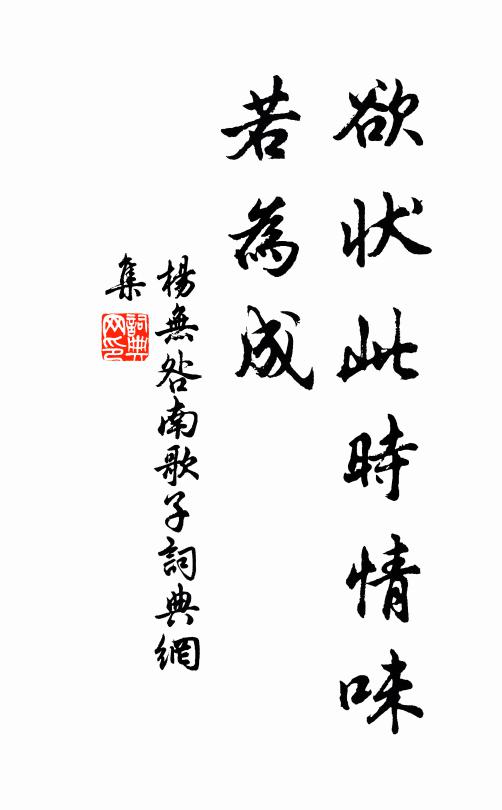 欲状此時情味
若為成
楊無咎南歌子詞典網
集
詞典網印